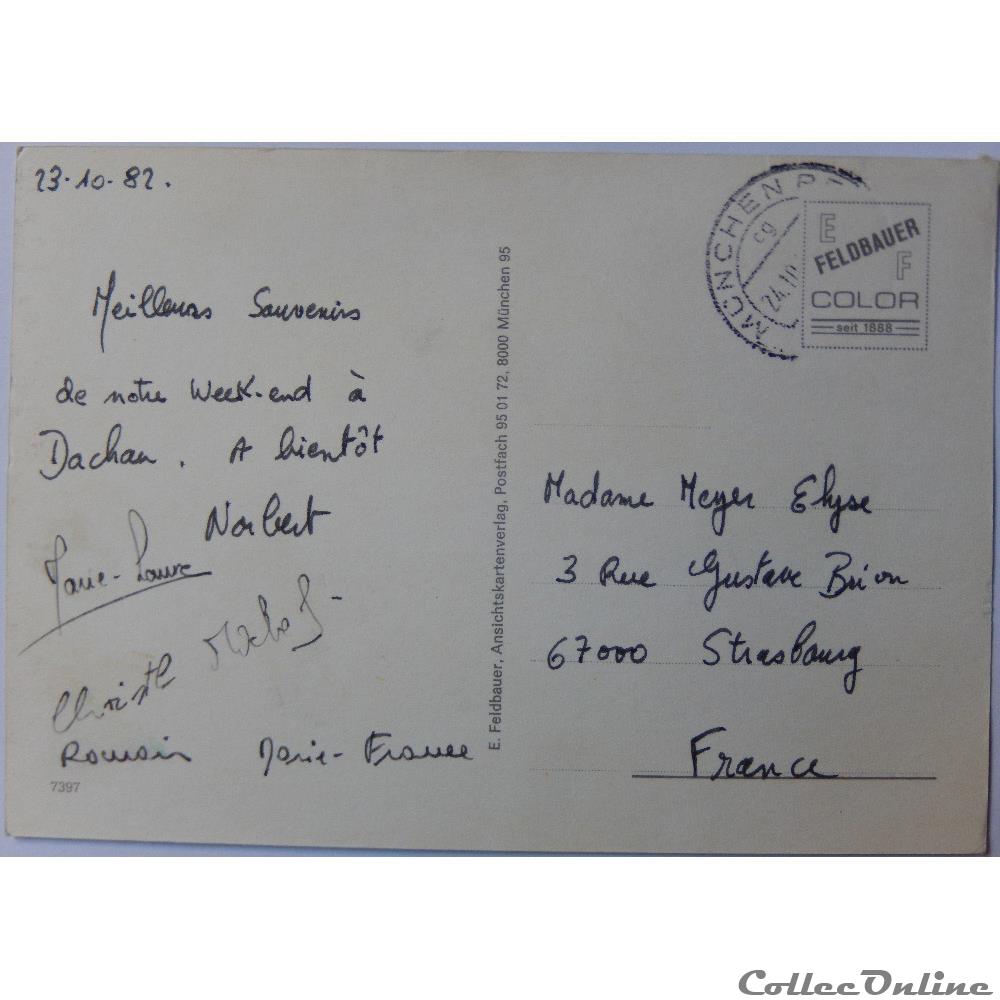 23.10.82.
Meilleurs Souvenirs
de notre Week-end à
Dachau. A bientôt
Norbert
Marie-Laure
Romain Marie-France
7397
E. Feldbauer, Ansichtskartenverlag, Postfach 95 01 72, 8000 München 95
MÜNCHEN
cg
24.10
E
FELDBAUER
F
COLOR
seit 1888
Madame Meyer Elyse
3 Rue Gustave Brion
67000 Strasbourg
France
CollecOnline